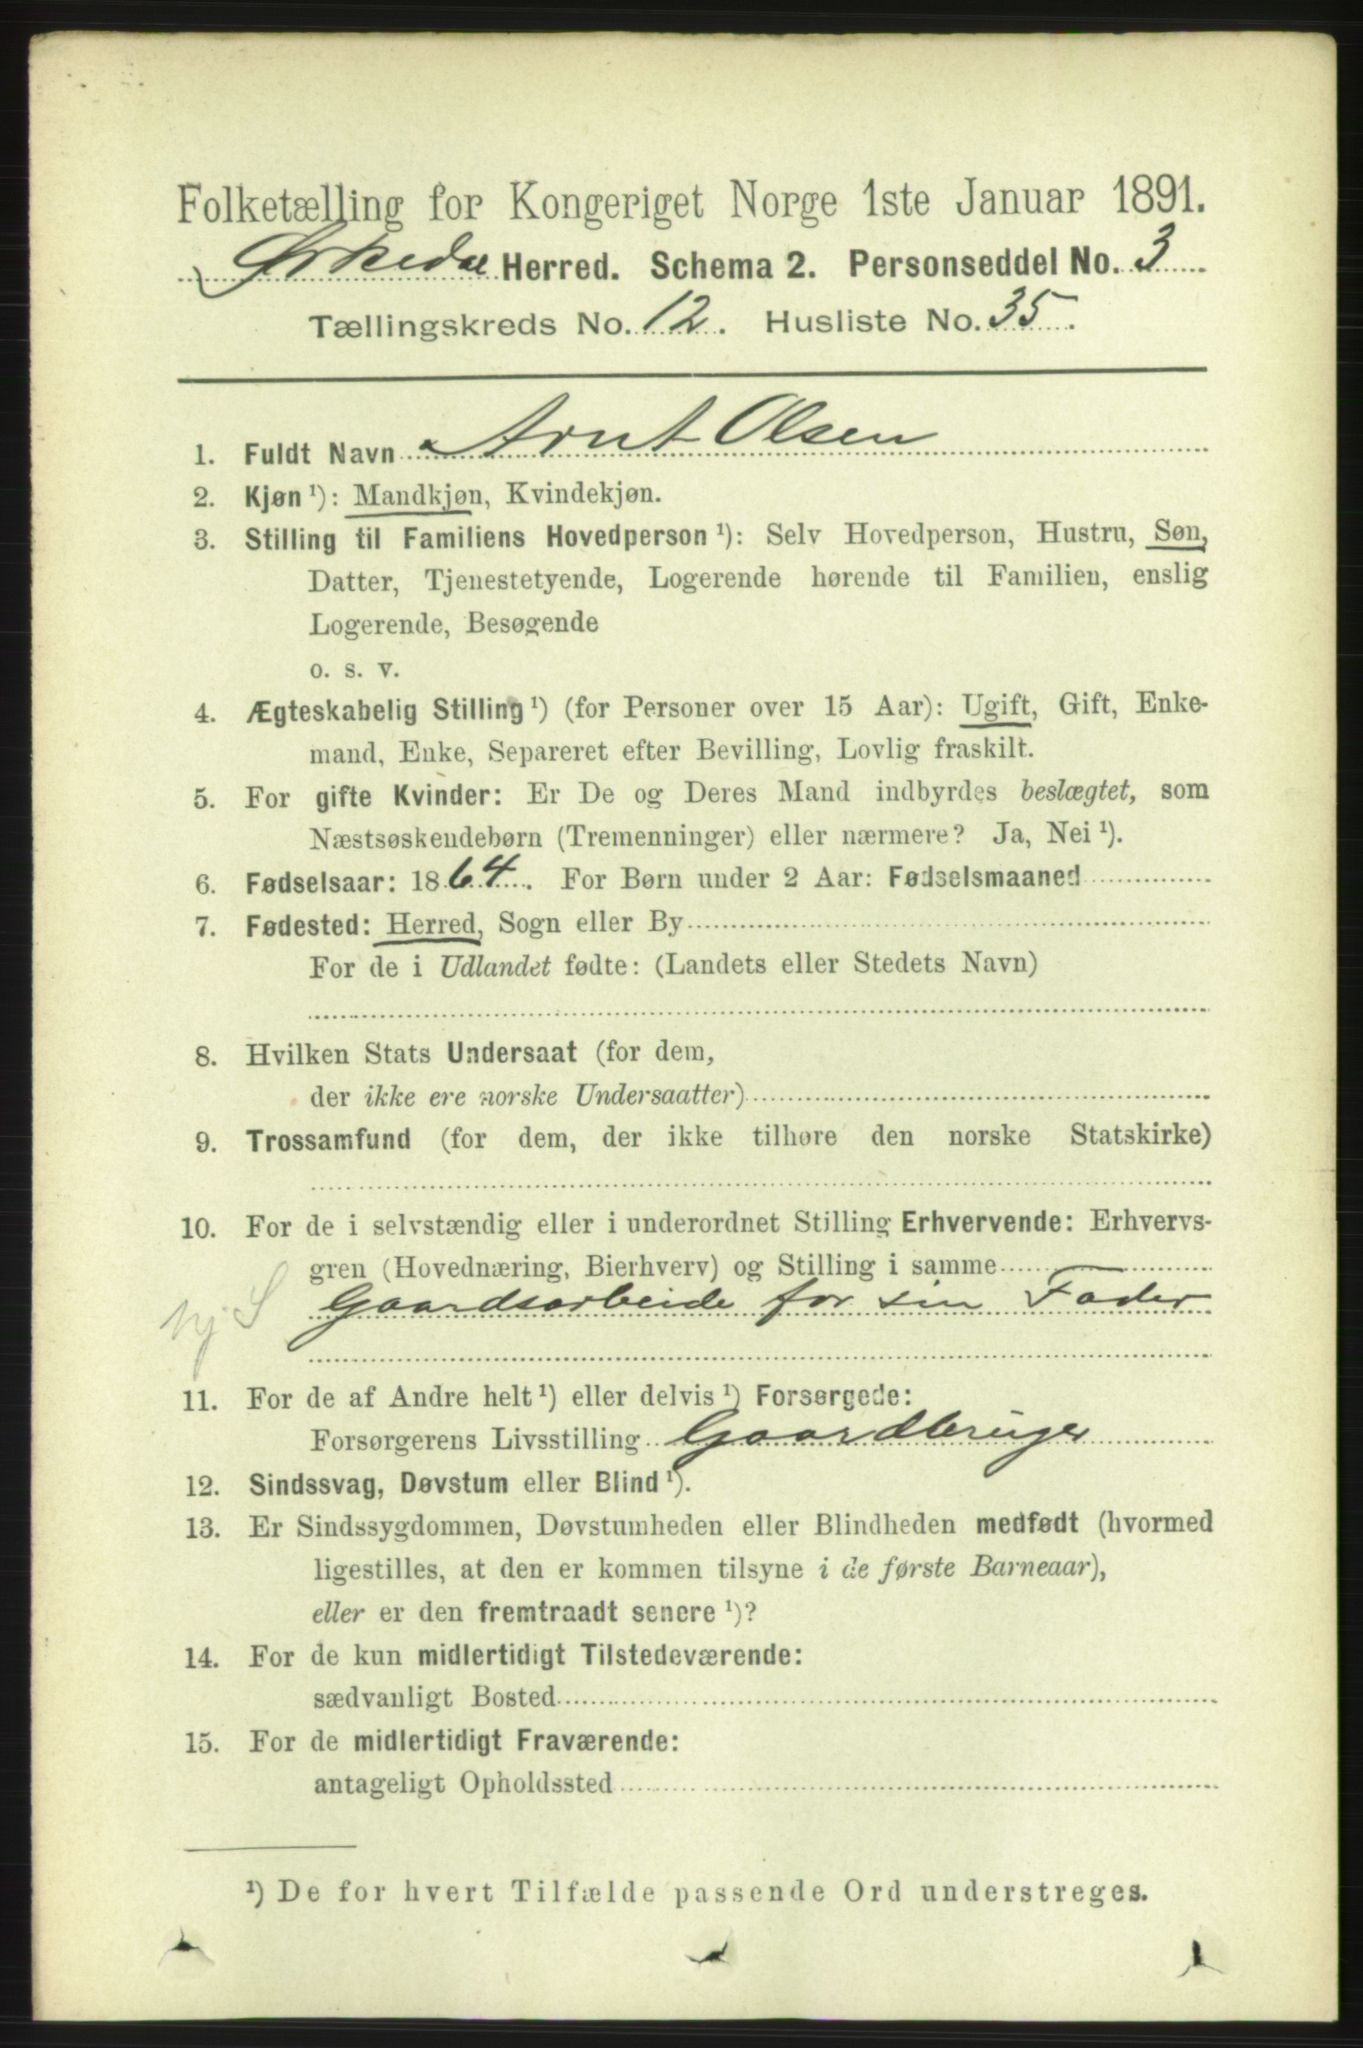 Folketælling for Kongeriget Norge 1ste Januar 1891.
Ørkedal Herred. Schema 2. Personseddel No. 3
Tællingskreds No. 12. Husliste No. 35.
1. Fuldt Navn Arnt Olsen
2. Kjøn ¹): Mandkjøn, Kvindekjøn.
3. Stilling til Familiens Hovedperson ¹): Selv Hovedperson, Hustru, Søn,
Datter, Tjenestetyende, Logerende hørende til Familien, enslig
Logerende, Besøgende
o. s. v.
4. Ægteskabelig Stilling ¹) (for Personer over 15 Aar): Ugift, Gift, Enke-
mand, Enke, Separeret efter Bevilling, Lovlig fraskilt.
5. For gifte Kvinder: Er De og Deres Mand indbyrdes beslægtet, som
Næstsøskendebørn (Tremenninger) eller nærmere? Ja, Nei ¹).
6. Fødselsaar: 1864. For Børn under 2 Aar: Fødselsmaaned
7. Fødested: Herred, Sogn eller By
For de i Udlandet fødte: (Landets eller Stedets Navn)
8. Hvilken Stats Undersaat (for dem,
der ikke ere norske Undersaatter)
9. Trossamfund (for dem, der ikke tilhøre den norske Statskirke)
10. For de i selvstændig eller i underordnet Stilling Erhvervende: Erhvervs-
gren (Hovednæring, Bierhverv) og Stilling i samme
hj S Gaardsarbeide for sin Fader
11. For de af Andre helt ¹) eller delvis ¹) Forsørgede:
Forsørgerens Livsstilling Gaardbruger
12. Sindssvag, Døvstum eller Blind ¹).
13. Er Sindssygdommen, Døvstumheden eller Blindheden medfødt (hvormed
ligestilles, at den er kommen tilsyne i de første Barneaar),
eller er den fremtraadt senere ¹)?
14. For de kun midlertidigt Tilstedeværende:
sædvanligt Bosted
15. For de midlertidigt Fraværende:
antageligt Opholdssted
¹) De for hvert Tilfælde passende Ord understreges.